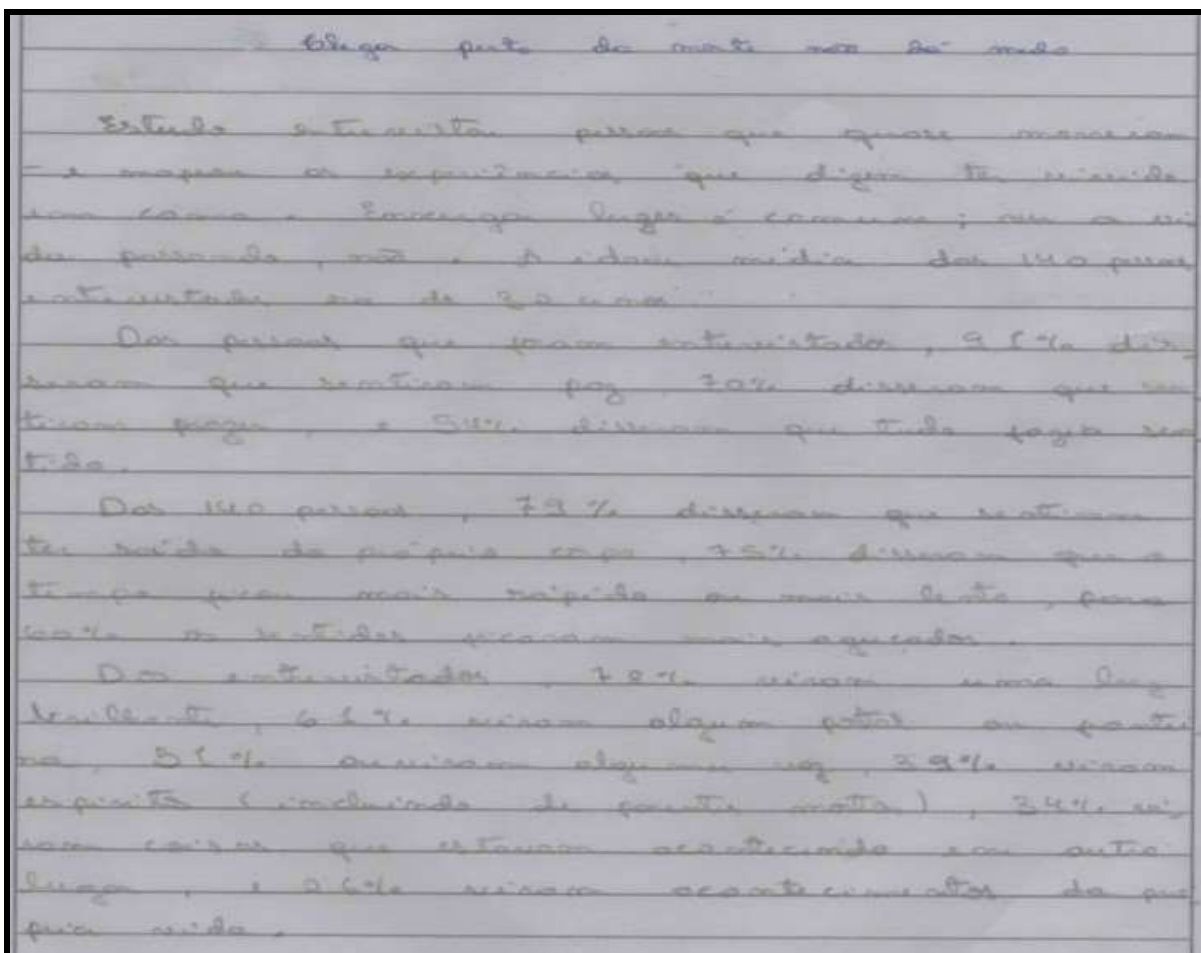 Chegar perto da morte não dá medo
Estudo entrevistou pessoas que quase morreram
- e mapeou as experiências que dizem ter vivido
em coma. Enxergar luzes é comum; ver a vi
da passando, não. A idade média das 140 pessoas
entrevistadas era de 32 anos.
Das pessoas que foram entrevistados, 95% dis
seram que sentiram paz, 70% disseram que sen
tiram prazer, e 54% disseram que tudo fazia sen
tido.
Das 140 pessoas, 79% disseram que sentiram
ter saído do próprio corpo, 75% disseram que o
tempo ficou mais rápido ou mais lento, para
60% os sentidos ficaram mais aguçados.
Dos entrevistados, 78% viram uma luz
brilhante, viram algum portal ou
ouviram alguma voz, 39% viram
espíritos (incluindo de gente morta), 34% vi
ram coisas que estavam acontecendo em outro
lugar, e viram acontecimentos da pró
pria vida.